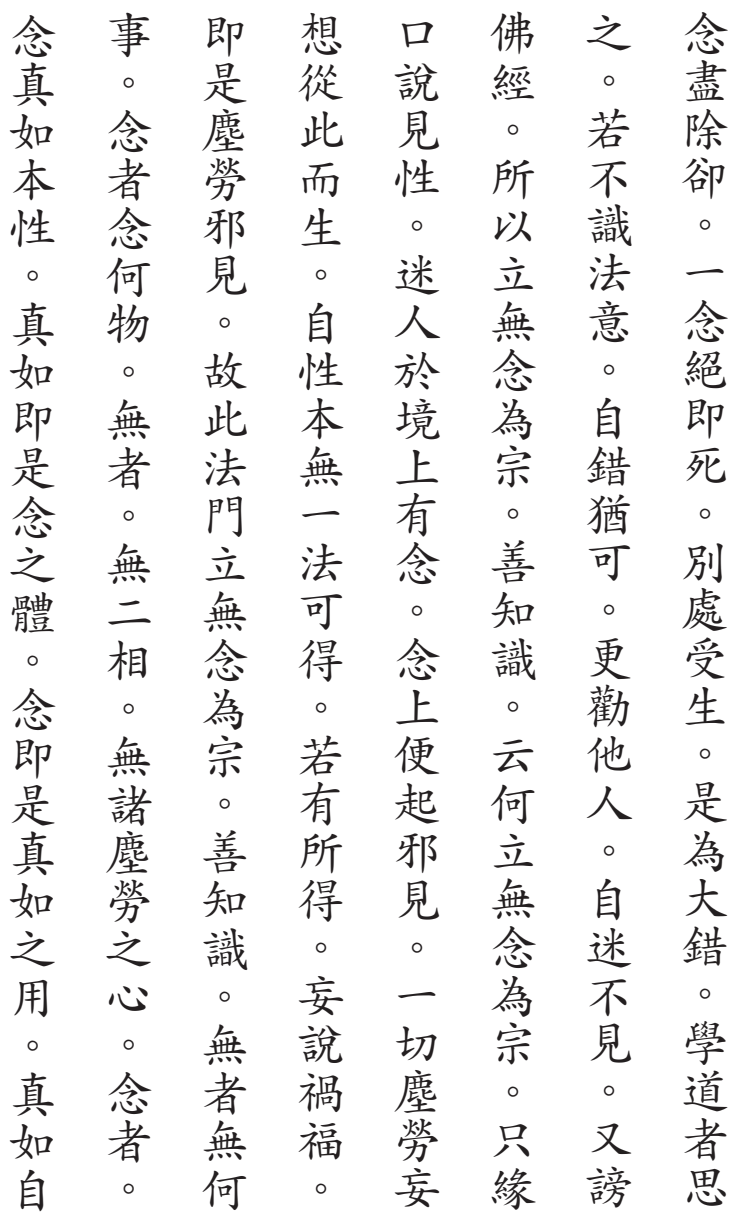 念盡除卻。一念絕即死。別處受生。是為大錯。學道者思
之。若不識法意。自錯猶可。更勸他人。自迷不見。又謗
佛經。所以立無念為宗。善知識。云何立無念為宗。只緣
口說見性。迷人於境上有念。念上便起邪見。一切塵勞妄
想從此而生。自性本無一法可得。若有所得。妄說禍福。
即是塵勞邪見。故此法門立無念為宗。善知識。無者無何
事。念者念何物。無者。無二相。無諸塵勞之心。念者。
念真如本性。真如即是念之體。念即是真如之用。真如自